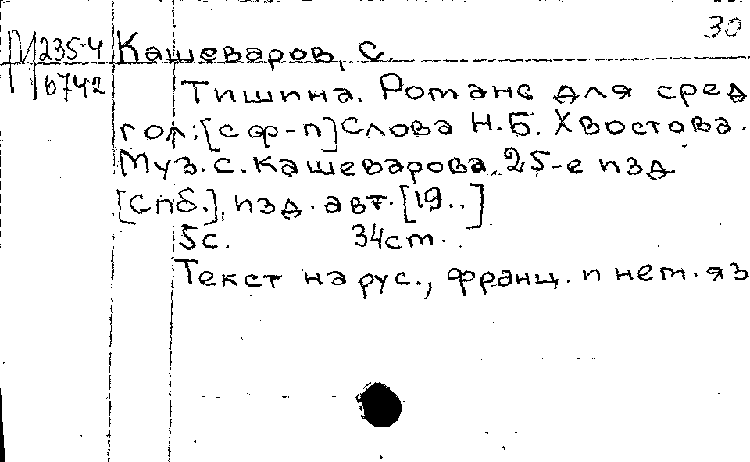 30
М 235-4 Кашеваров, С.
П 6742
Тишина. Романс для сред
гол; [с ф-п] Слова Н.Б. Хвостова.
Муз. С. Кашеварова. 25-е изд
[Спб.], изд. авт. [19..]
5с. 34cm.
Текст на рус., франц. и нем. яз